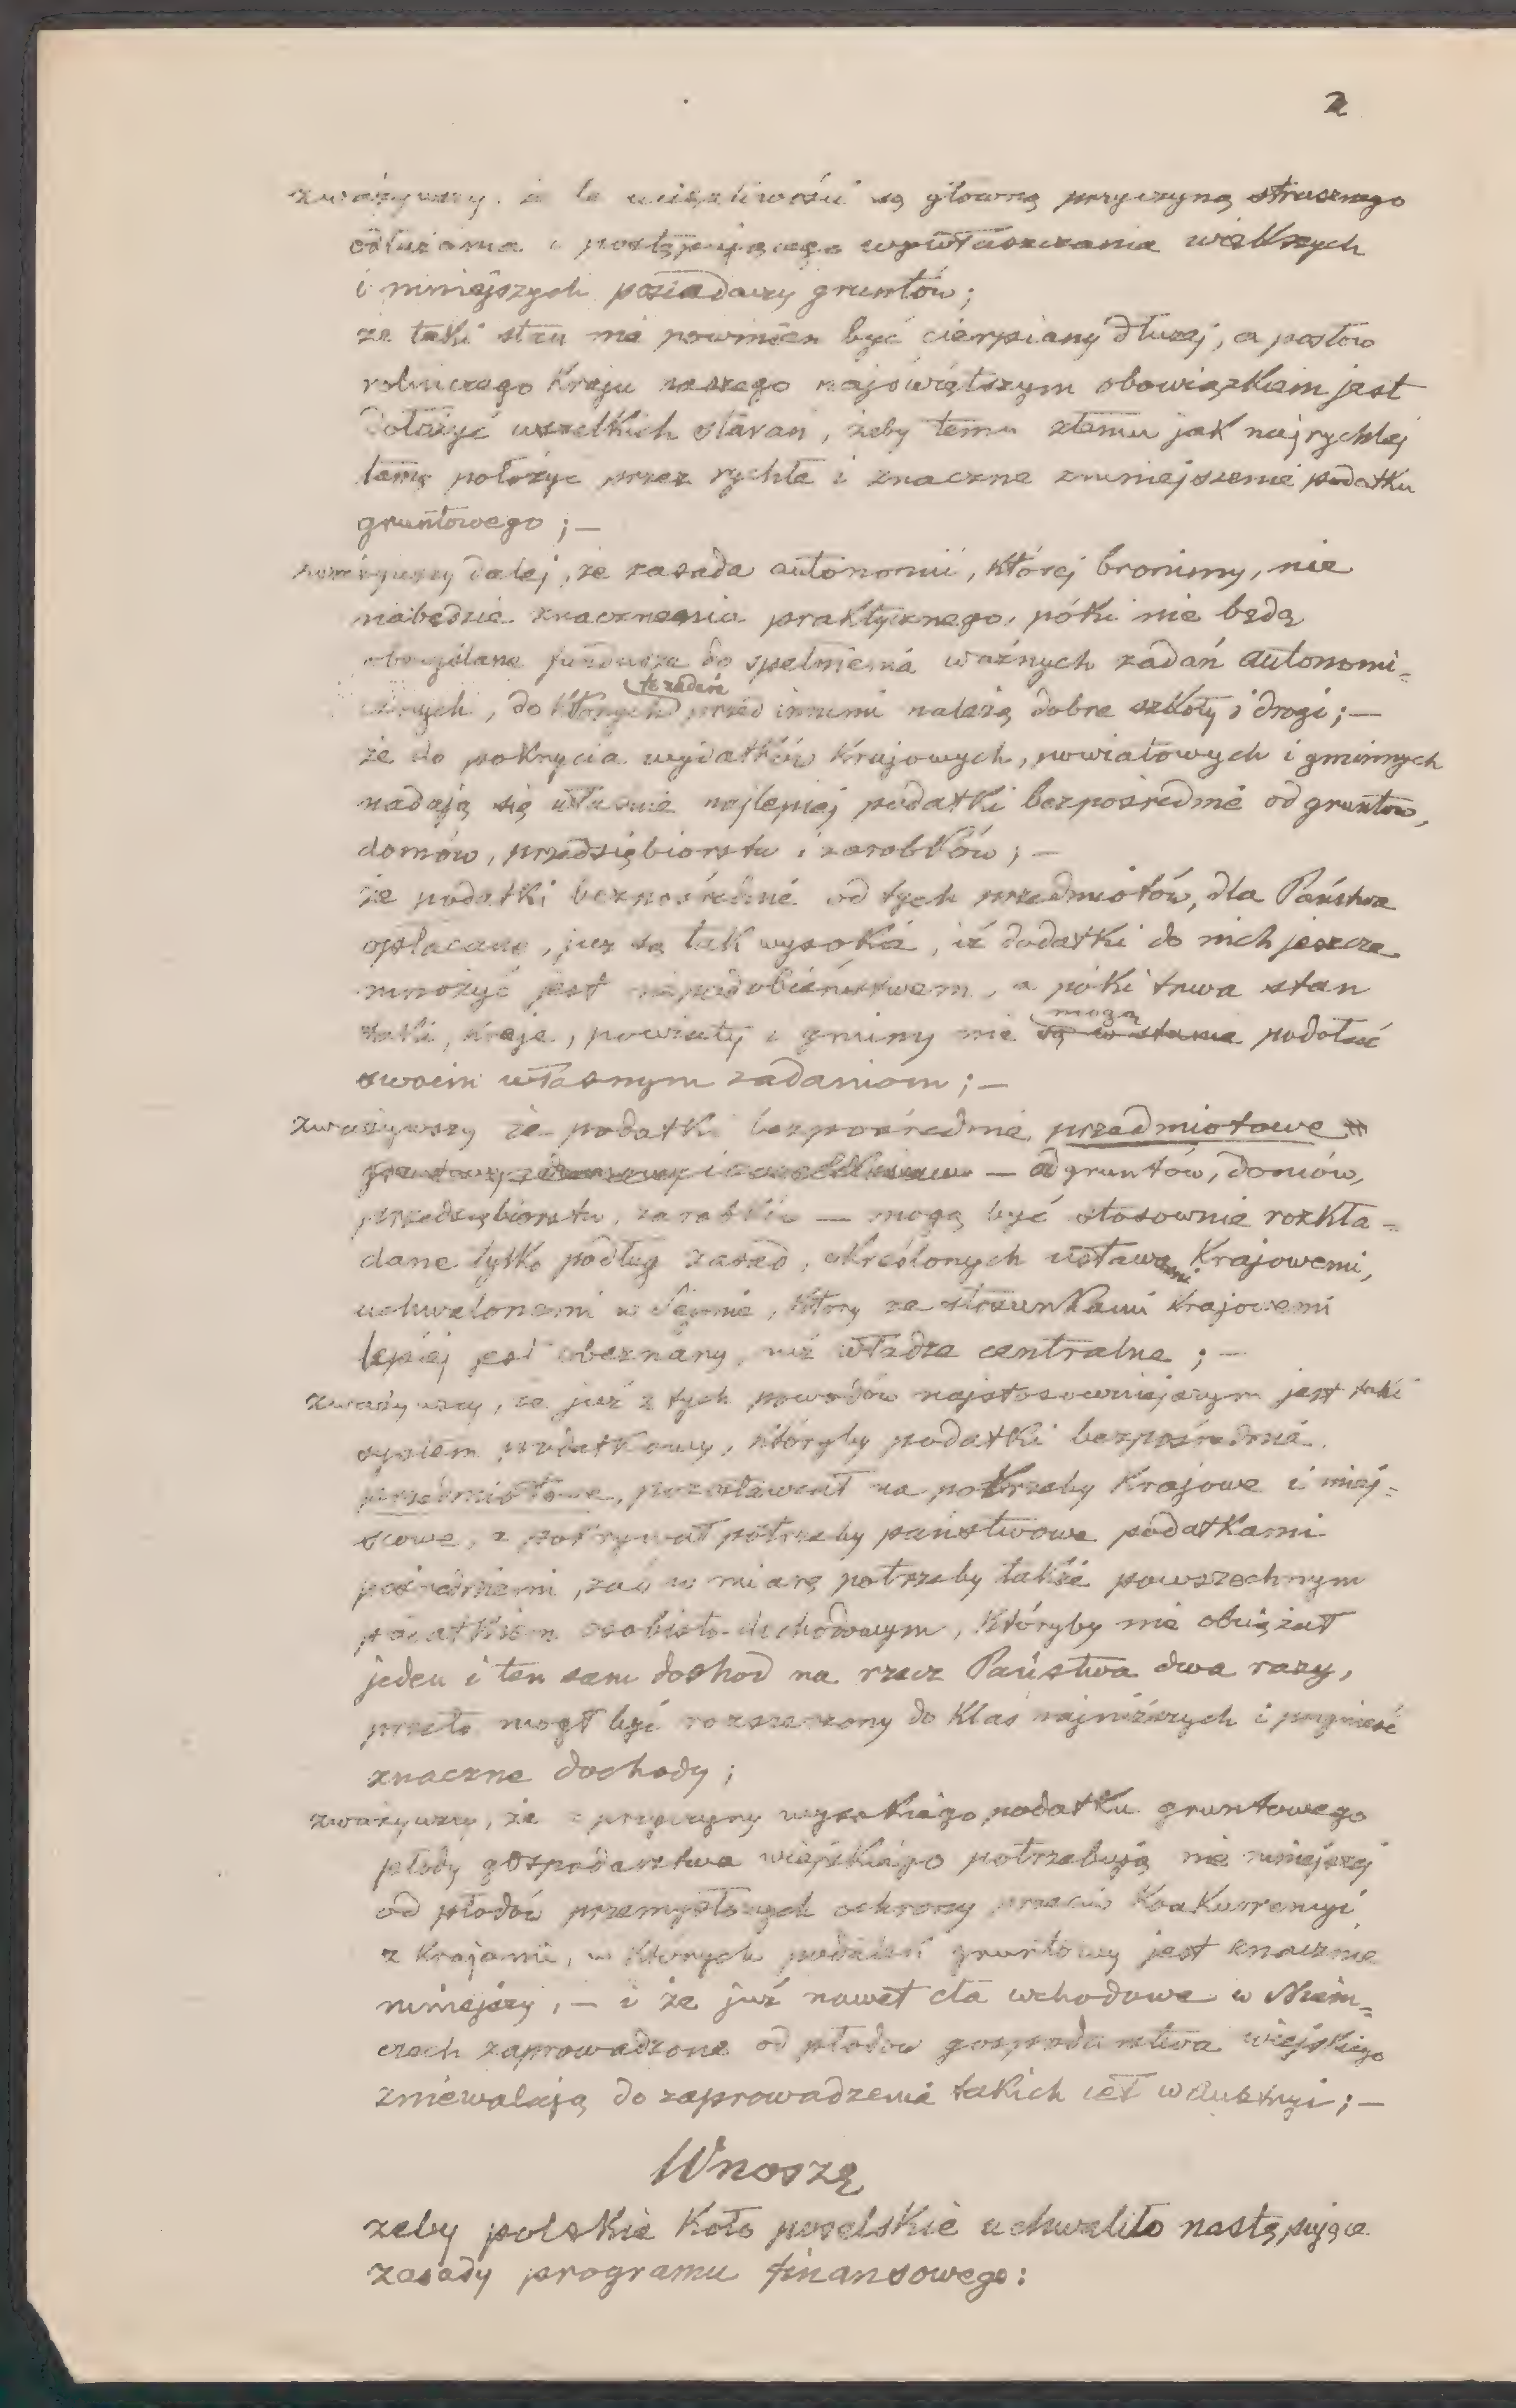 2
zważywszy, że te uciążliwości są główną przyczyną strasznego
odłużania i postępującego wywłaszczania większych
i mniejszych posiadaczy gruntów;
że taki stan nie powinien być cierpiany dłużej, a posłów
rolniczego Kraju naszego najświętszym obowiązkiem jest
dołożyć wszelkich starań, żeby temu złemu jak najrychlej
tamę położyć przez rychłe i znaczne zmniejszenie podatku
gruntowego; —
zważywszy dalej, że zasada autonomii, której bronimy, nie
nabędzie znaczenia praktycznego, póki nie będą
obmyślane fundusze do spełnienia ważnych zadań autonomi-
te zadań
cznych, do których przed innymi należą dobre szkoły i drogi; —
że do pokrycia wydatków Krajowych, powiatowych i gminnych
nadają się właśnie najlepiej podatki bezpośrednie od gruntów,
domów, przedsiębiorstw i zarobków; —
że podatki bezpośrednie od tych przedmiotów, dla Państwa
opłacane, już są tak wysokie, iż dodatki do nich jeszcze
mnożyć jest niepodobieństwem, a póki trwa stan
mogą
taki, kraje, powiaty i gminy nie są w stanie podołać
swoim własnym zadaniom; —
zważywszy że podatki bezpośrednie przedmiotowe
— od gruntów, domów,
przedsiębiorstw, zarobków — mogą być stosownie rozkła-
dane tylko podług zasad, określonych ustawami Krajowemi,
uchwalonemi w Sejmie, który ze stosunkami Krajowemi
lepiej jest obeznany, niż władze centralne; —
zważywszy, że już z tych powodów najstosowniejszym jest taki
system podatkowy, któryby podatki bezpośrednie
przedmiotowe, pozostawiał na potrzeby Krajowe i miej-
scowe, a pokrywał potrzeby państwowe podatkami
pośredniemi, zaś w miarę potrzeby także powszechnym
podatkiem osobisto-dochodowym, któryby nie obciążał
jeden i ten sam dochod na rzecz Państwa dwa razy,
przeto mogł być rozszerzony do Klas najniższych i przynieść
znaczne dochody;
zważywszy, że z przyczyny wysokiego podatku gruntowego
płody gospodarstwa wiejskiego potrzebują nie mniejszej
od płodów przemysłowych ochrony przeciw Konkurencyi
z Krajami, w których podatek gruntowy jest znacznie
mniejszy, — i że już nawet cła wchodowe w Niem-
czech zaprowadzone od płodów gospodarstwa wiejskiego
zniewalają do zaprowadzenia takich ceł w Austryi; —
Wnoszę
żeby polskie Koło poselskie uchwaliło następujące
zasady programu finansowego: